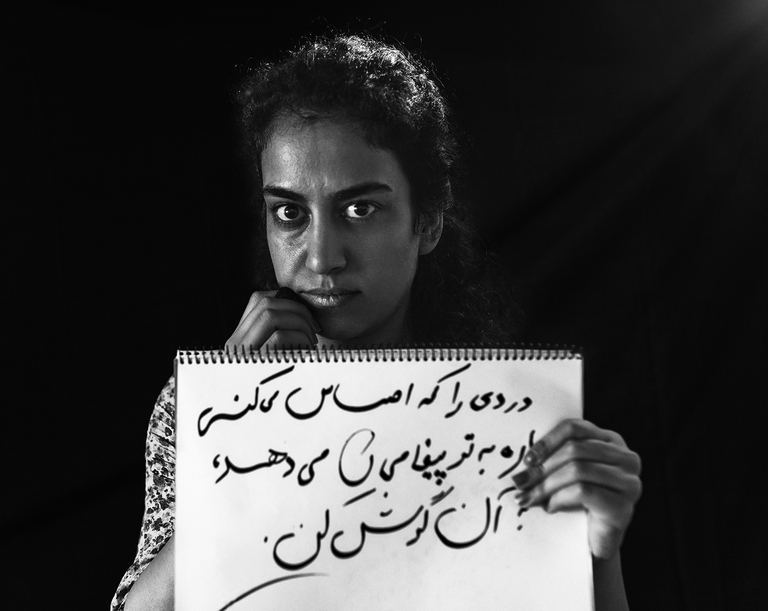 دردی را که احساس می‌کنی
به تو پیغامی می‌دهد،
آن گوش کن.